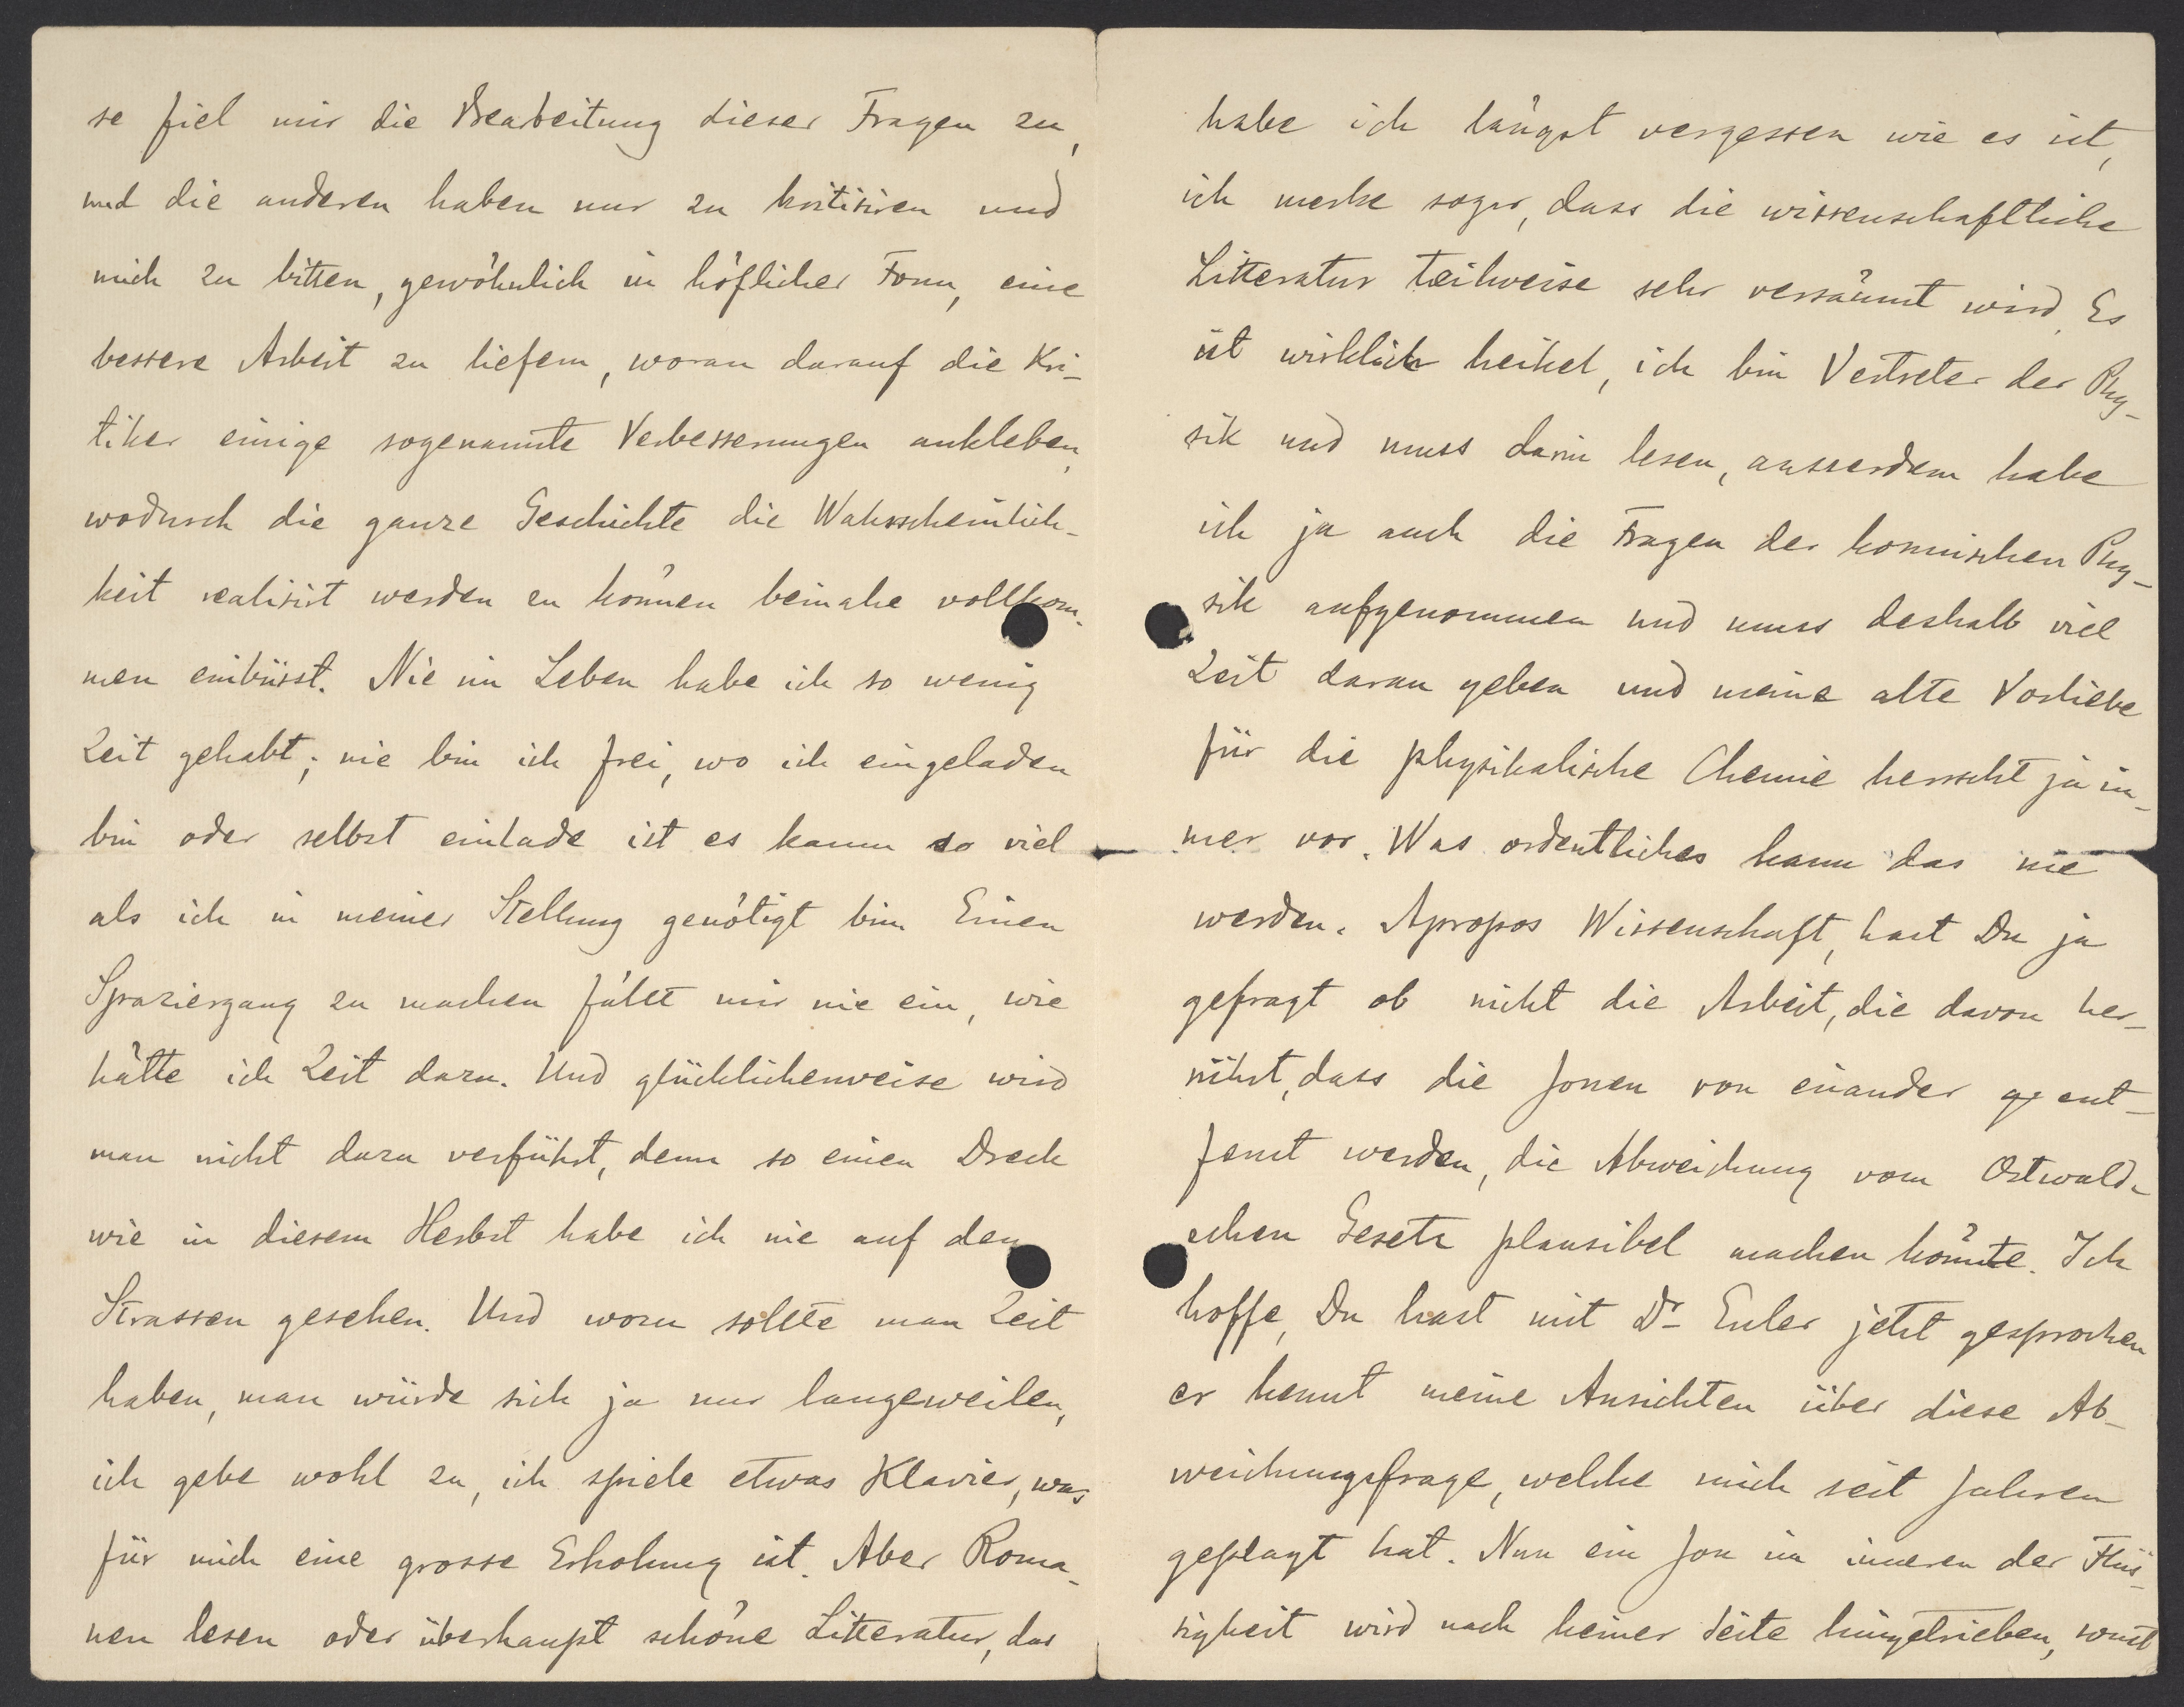 so fiel mir die Bearbeitung dieser Fragen zu,
und die anderen haben nur zu kritisiren und
mich zu bitten, gewöhnlich in höflicher Form, eine
bessere Arbeit zu liefern, woran darauf die Kri-
tiker einige sogenannte Verbesserungen ankleben,
wodurch die ganze Geschichte die Wahrscheinlich-
keit realisirt werden zu können beinahe vollkom-
men einbüsst. Nie im Leben habe ich so wenig
Zeit gehabt; nie bin ich frei, wo ich eingeladen
bin oder selbst einlade ist es kaum so viel
als ich in meiner Stellung genötigt bin. Einen
Spaziergang zu machen fällt mir nie ein, wie
hätte ich Zeit dazu. Und glücklicherweise wird
man nicht dazu verführt, denn so einen Dreck
wie in diesem Herbst habe ich nie auf den
Strassen gesehen. Und wozu sollte man Zeit
haben, man würde sich ja nur langeweilen,
ich gebe wohl zu, ich spiele etwas Klavier, was
für mich eine grosse Erholung ist. Aber Roma-
nen lesen oder überhaupt schöne Litteratur, das
habe ich längst vergessen wie es ist,
ich merke sogar, dass die wissenschaftliche
Litteratur teilweise sehr versäumt wird. Es
ist wirklich heikel, ich bin Vertreter der Phy-
sik und muss darin lesen, ausserdem habe
ich ja auch die Fragen der kosmischen Phy-
sik aufgenommen und muss deshalb viel
Zeit daran geben und meine alte Vorliebe
für die physikalische Chemie herrscht ja im-
mer vor. Was ordentliches kann das nie
werden. Apropos Wissenschaft, hast Du ja
gefragt ob nicht die Arbeit, die davon her-
rührt, dass die Jonen von einander ge ent-
fernt werden, die Abweichung vom Ostwald-
schen Gesetz plausibel machen könnte. Ich
hoffe, Du hast mit Dr Euler jetzt gesprochen
er kennt meine Ansichten über diese Ab-
weichungsfrage, welche mich seit Jahren
geplagt hat. Nun ein Jon im inneren der Flüs-
sigkeit wird nach keiner Seite hingetrieben, sonst